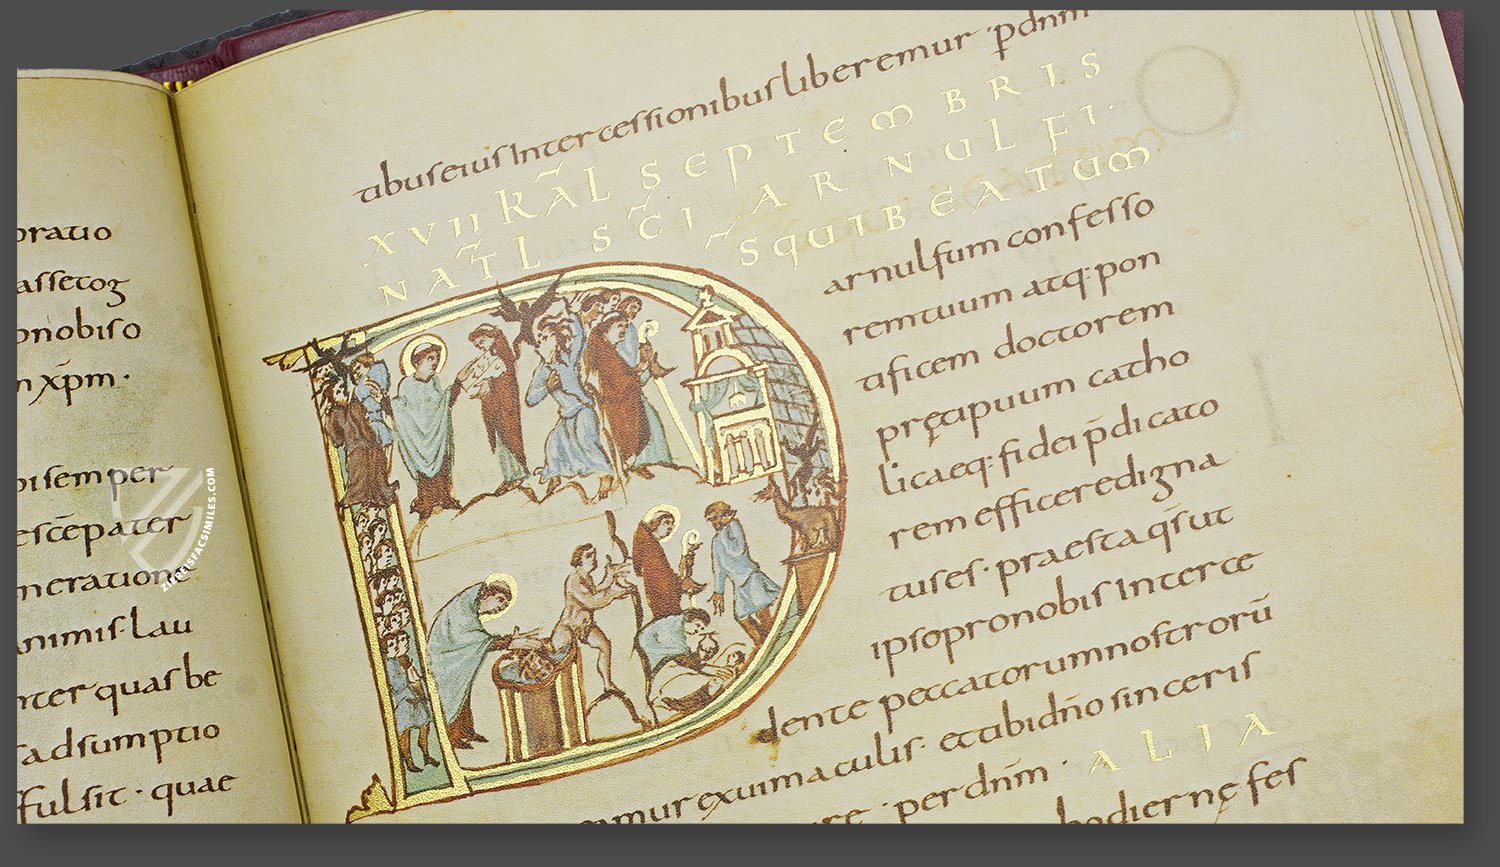 oratio
assetoꝫ
onobiſo
n xp̄m ·
biſemper
eſcēpater
nerationē
animiſ·lau
nter quaſbe
adſumptio
fulſit · quae
tibuſeiuſ Interceſſionibuſ liberemur · pdnm
XVII KAL SEPTEMBRIS
NATL SCI ARNULFI·
DSQUIBEATUM
arnulfum confeſſo
remtuum atq; pon
tificem doctorem
pręcipuum catho
licaeq; fidei p̄dicato
rem efficeredigna
tuſeſ · praeſta q̄ſut
ipſopronobiſ Interce
dente peccatorumnoſtrorū
mur exuimaculiſ · etatibidn̄o ſinceriſ
re · per dnm̄ · ALIA
hodiernę feſ
ZIEREISFACSIMILES.COM